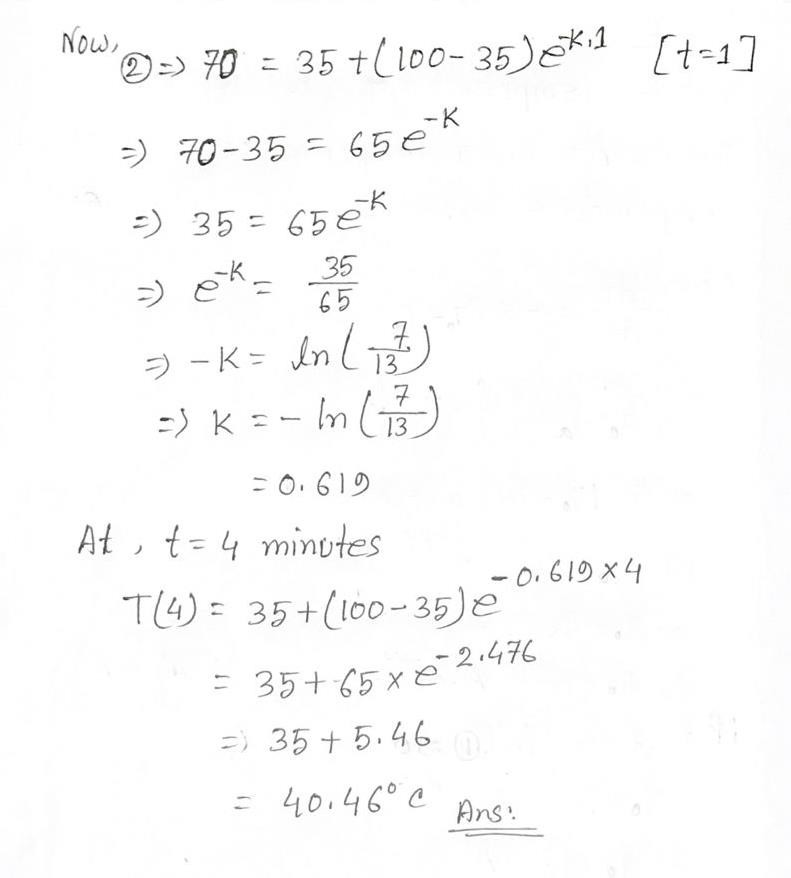 Now,
② => 70 = 35 + (100 - 35) e^{-K.1} [t=1]
=> 70 - 35 = 65 e^{-K}
=> 35 = 65 e^{-K}
=> e^{-K} = 35/65
=> -K = ln(7/13)
=> K = - ln(7/13)
= 0.619
At, t = 4 minutes
T(4) = 35 + (100 - 35) e^{-0.619 × 4}
= 35 + 65 × e^{-2.476}
=> 35 + 5.46
= 40.46° C Ans: